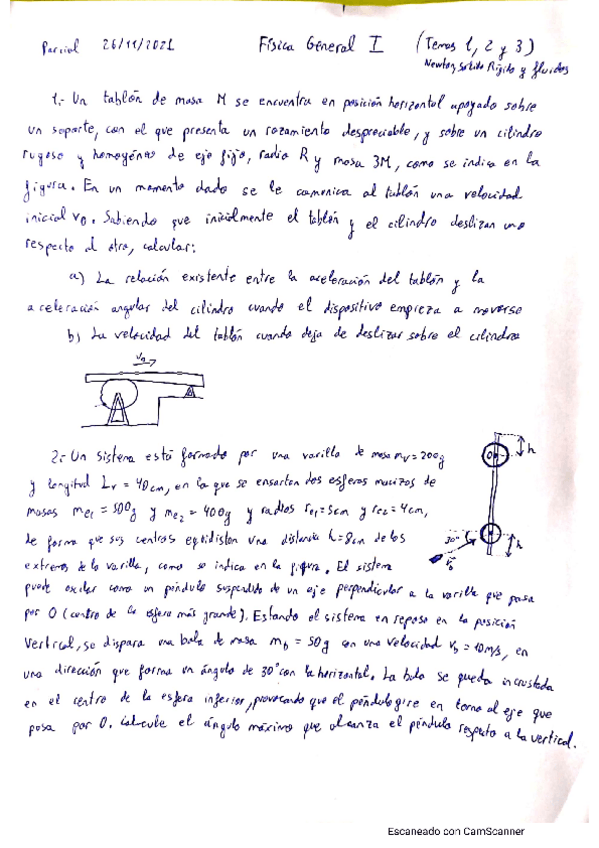 Parcial 26/11/2021 Física General I (Temas 1, 2 y 3)
Newton, Sólido Rígido y fluidos
1.- Un tablón de masa M se encuentra en posición horizontal apoyado sobre
un soporte, con el que presenta un rozamiento despreciable, y sobre un cilindro
rugoso y homogéneo de eje fijo, radio R y masa 3M, como se indica en la
figura. En un momento dado se le comunica al tablón una velocidad
inicial v0. Sabiendo que inicialmente el tablón y el cilindro deslizan uno
respecto al otro, calcular:
a) La relación existente entre la aceleración del tablón y la
aceleración angular del cilindro cuando el dispositivo empieza a moverse
b) La velocidad del tablón cuando deja de deslizar sobre el cilindro
v0
2.- Un sistema está formado por una varilla de masa mv = 200g
y longitud Lv = 40cm, en la que se ensartan dos esferas macizas de
masas me1 = 500g y me2 = 400g y radios re1 = 5cm y re2 = 4cm,
de forma que sus centros equidisten una distancia h = 8cm de los
extremos de la varilla, como se indica en la figura. El sistema
puede oscilar como un péndulo suspendido de un eje perpendicular a la varilla que pasa
por O (centro de la esfera más grande). Estando el sistema en reposo en la posición
vertical, se dispara una bala de masa mb = 50g con una velocidad vb = 10m/s, en
una dirección que forma un ángulo de 30° con la horizontal. La bala se queda incrustada
en el centro de la esfera inferior, provocando que el péndulo gire en torno al eje que
pasa por O. Calcule el ángulo máximo que alcanza el péndulo respecto a la vertical.
h
O
30°
h
Escaneado con CamScanner